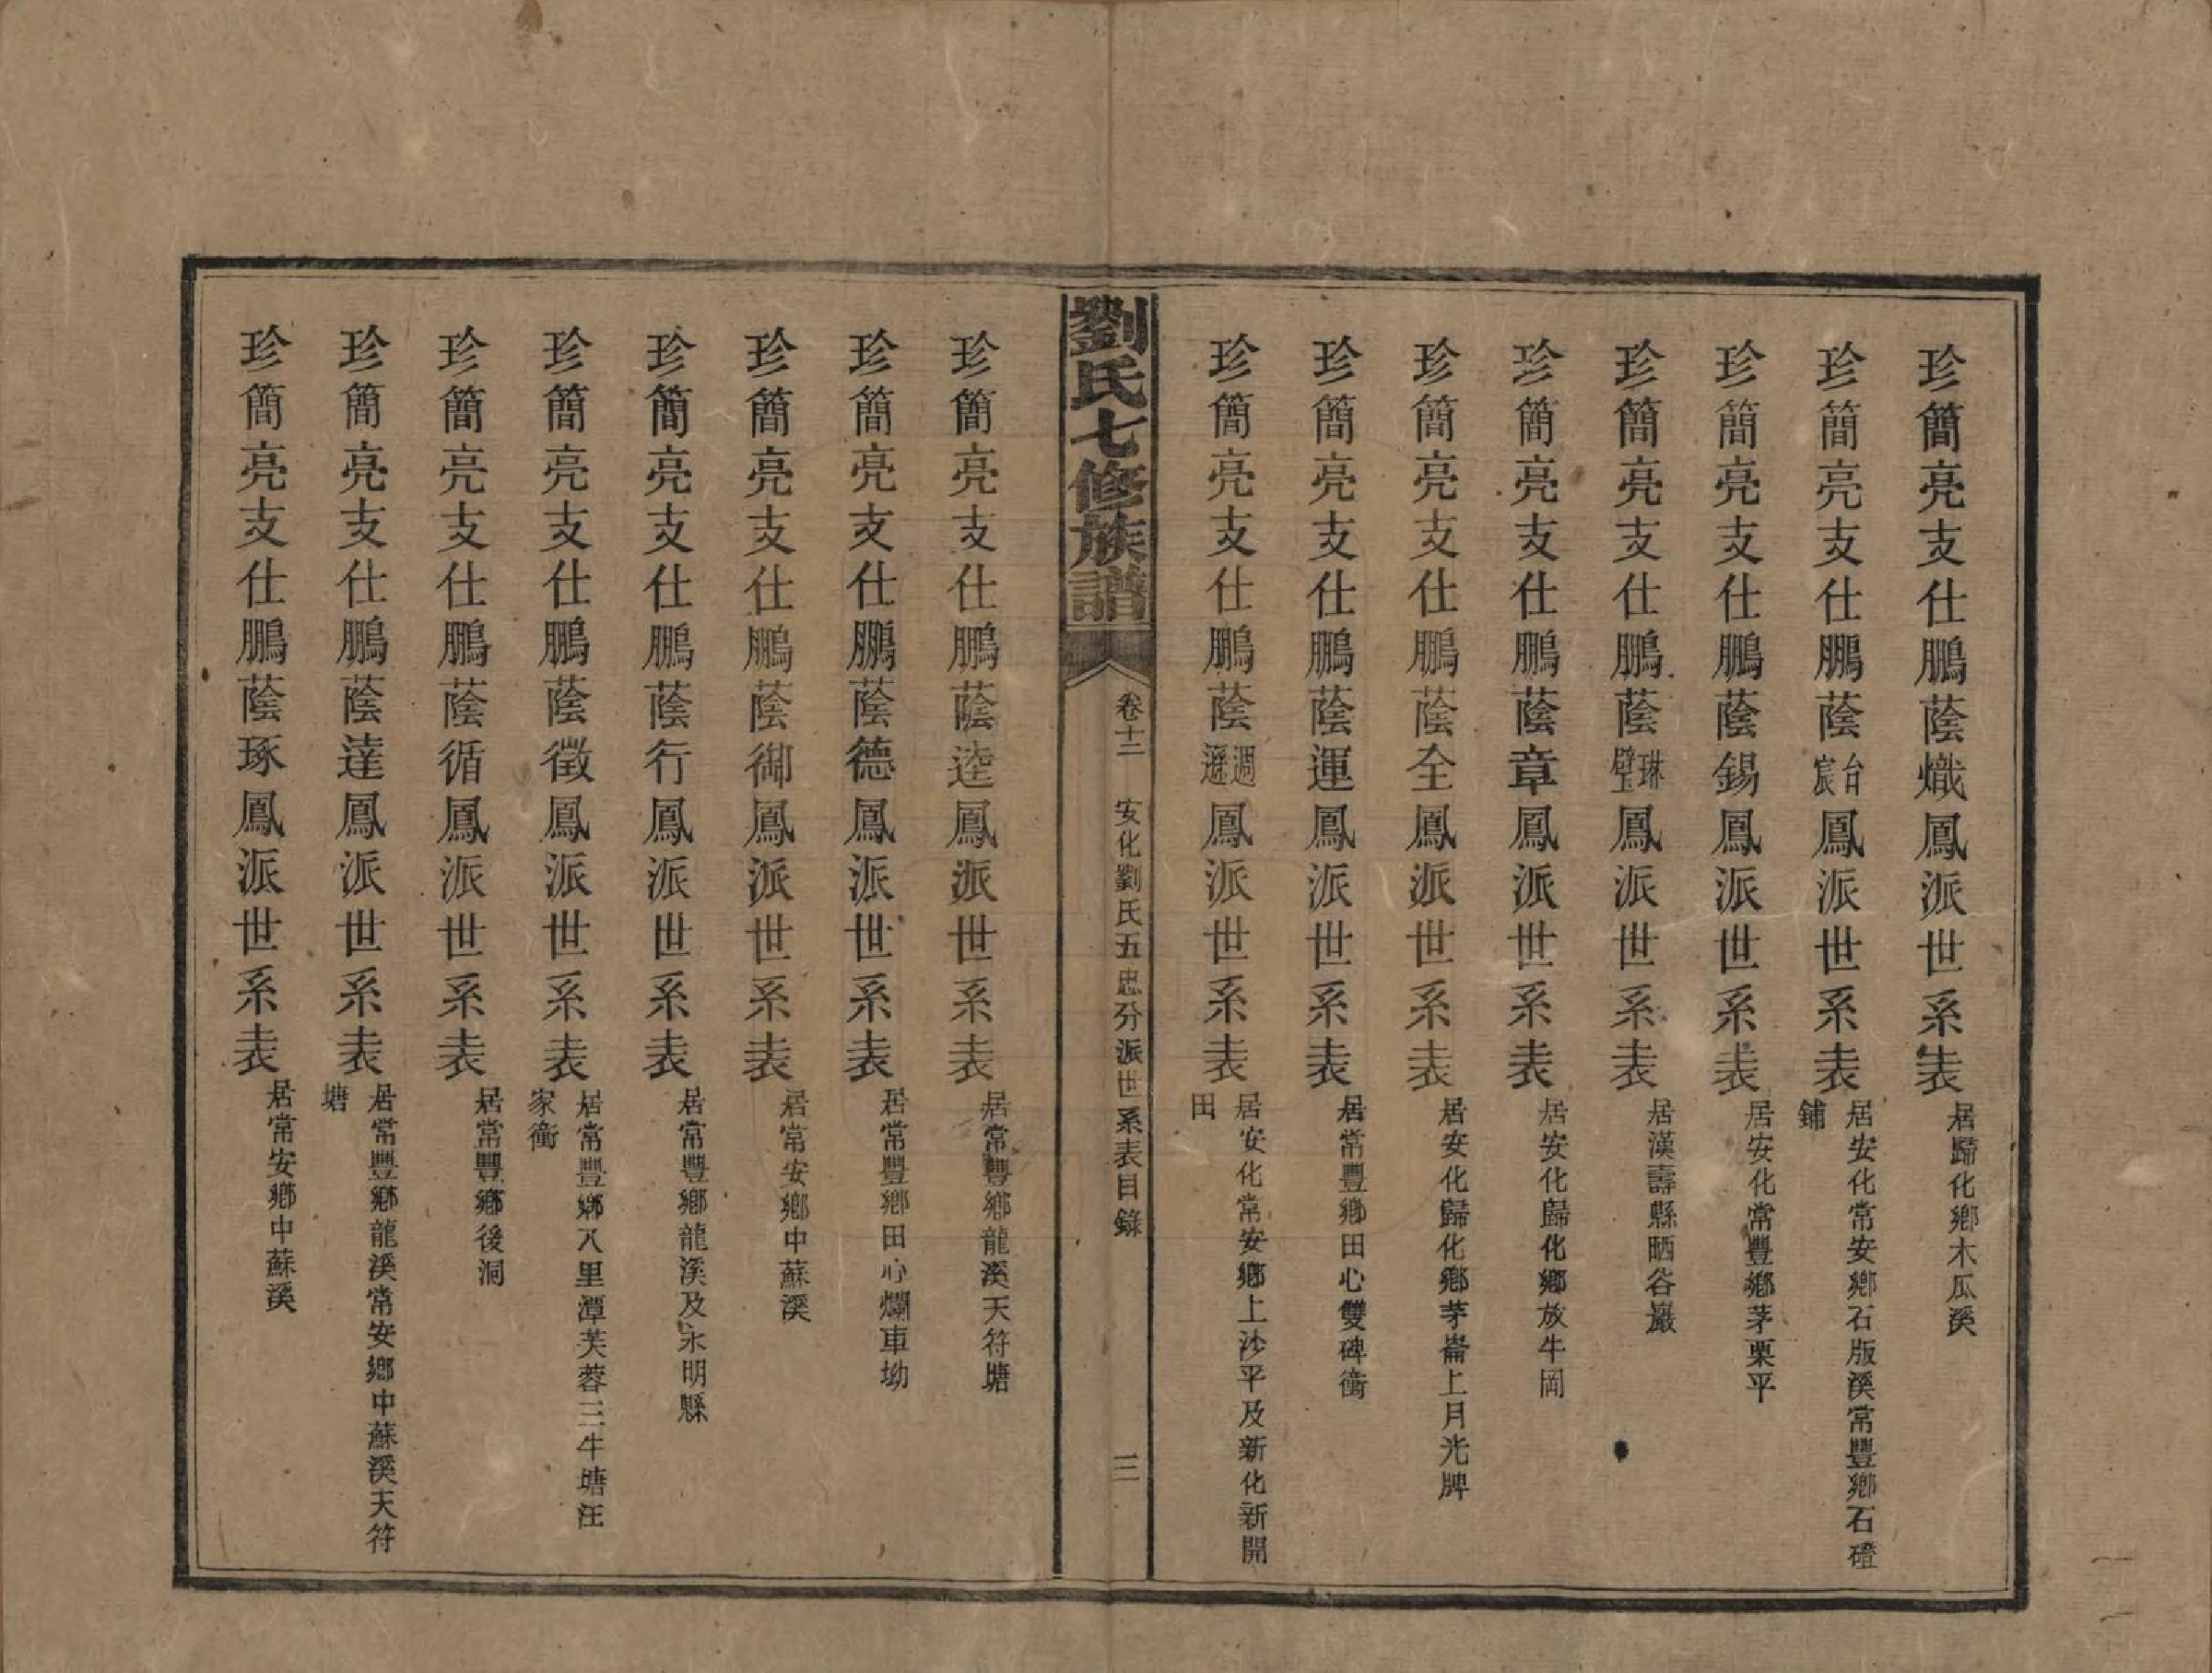 珍簡亮支仕鵬蔭熾鳳派世系表 居歸化鄉木瓜溪
珍簡亮支仕鵬蔭台宸鳳派世系表 居安化常安鄉石版溪常豐鄉石磴鋪
珍簡亮支仕鵬蔭錫鳳派世系表 居安化常豐鄉茅栗平
珍簡亮支仕鵬蔭琳璧鳳派世系表 居漢壽縣晒谷巖
珍簡亮支仕鵬蔭章鳳派世系表 居安化歸化鄉放牛岡
珍簡亮支仕鵬蔭全鳳派世系表 居安化歸化鄉茅崙上月光牌
珍簡亮支仕鵬蔭運鳳派世系表 居常豐鄉田心雙碑衝
珍簡亮支仕鵬蔭週鳳派世系表 居安化常安鄉上沙平及新化新開田
劉氏七修族譜 卷十二 安化劉氏五忠分派世系表目錄 三
珍簡亮支仕鵬蔭逵鳳派世系表 居常豐鄉龍溪天符塘
珍簡亮支仕鵬蔭德鳳派世系表 居常豐鄉田心爛車坳
珍簡亮支仕鵬蔭御鳳派世系表 居常安鄉中蘇溪
珍簡亮支仕鵬蔭行鳳派世系表 居常豐鄉龍溪及永明縣
珍簡亮支仕鵬蔭徵鳳派世系表 居常豐鄉八里潭芙蓉三牛塘汪家衝
珍簡亮支仕鵬蔭循鳳派世系表 居常豐鄉後洞
珍簡亮支仕鵬蔭達鳳派世系表 居常豐鄉龍溪常安鄉中蘇溪天符塘
珍簡亮支仕鵬蔭琢鳳派世系表 居常安鄉中蘇溪